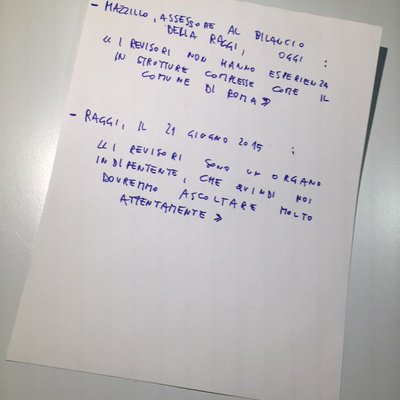 - MAZZILLO, ASSESSORE AL BILANCIO
DELLA RAGGI, OGGI :
« I REVISORI NON HANNO ESPERIENZA
IN STRUTTURE COMPLESSE COME IL
COMUNE DI ROMA »
- RAGGI, IL 21 GIUGNO 2015 :
« I REVISORI SONO UN ORGANO
INDIPENTENTE, CHE QUINDI NOI
DOVREMMO ASCOLTARE MOLTO
ATTENTAMENTE »